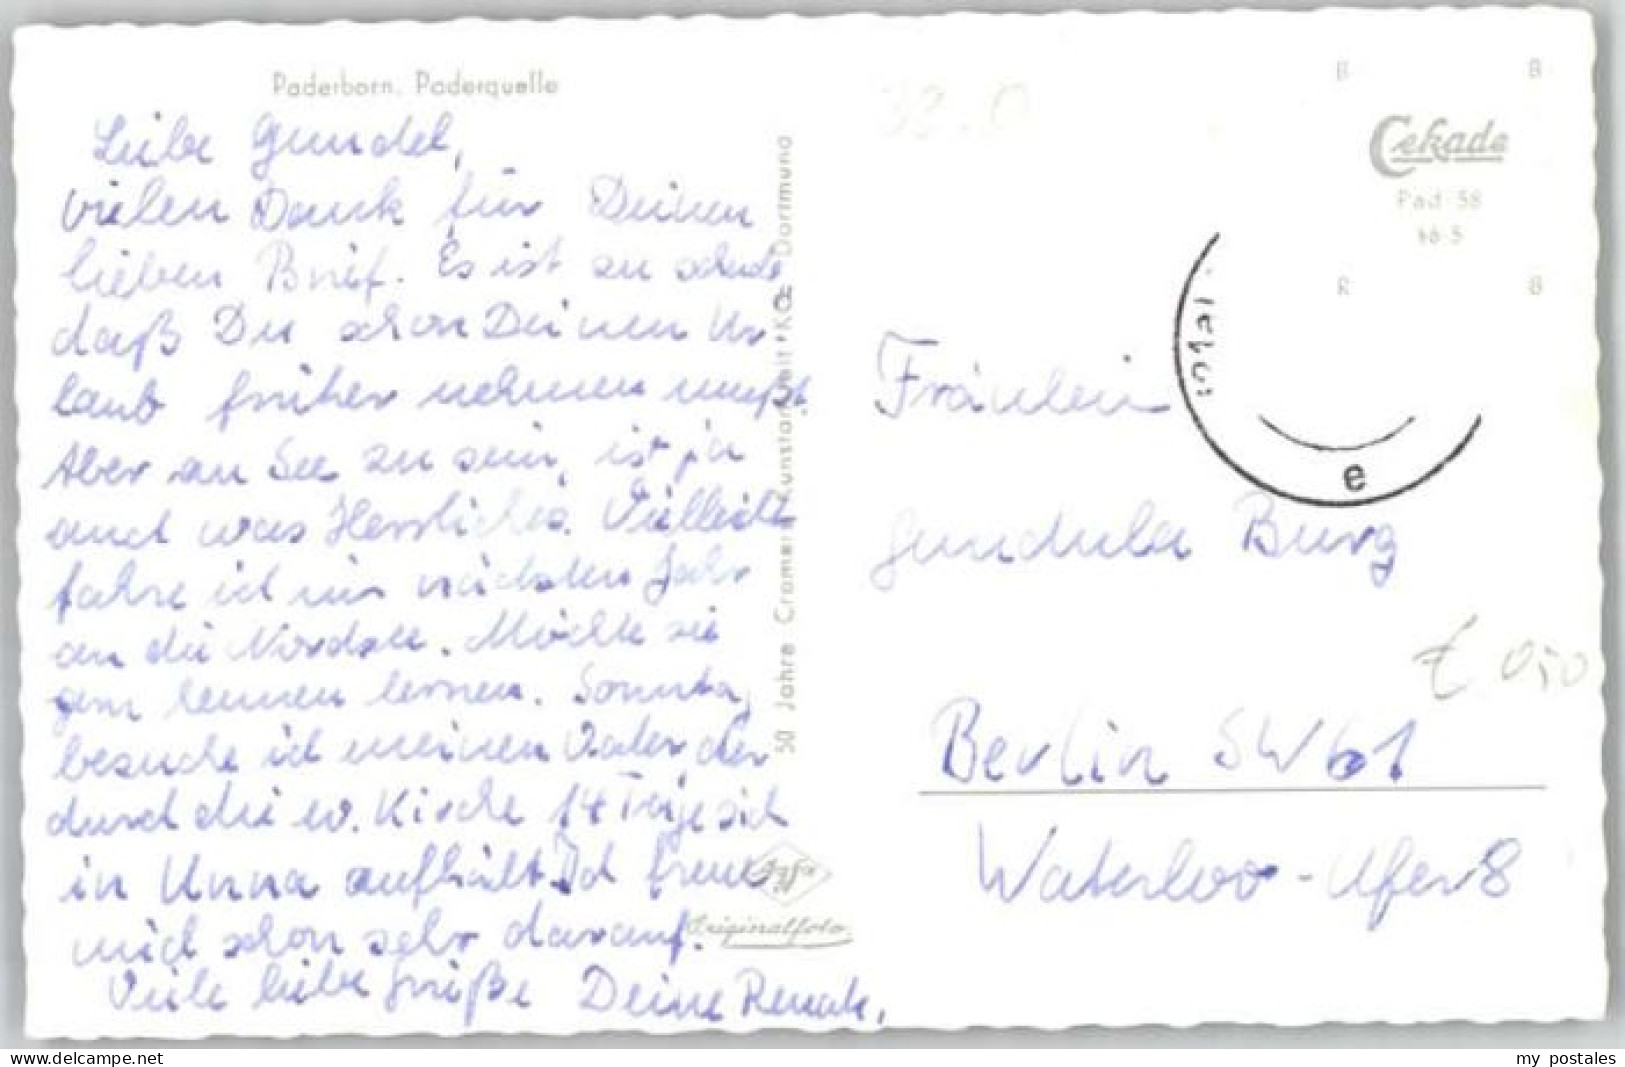 Paderborn. Paderquelle
Liebe Gundel,
vielen Dank für Deinen
lieben Brief. Es ist zu schade
daß Du schon Deinen Ur
laub früher nehmen mußt.
Aber an See zu sein, ist ja
auch was Herrliches. Vielleicht
fahre ich im nächsten Jahr
an die Nordsee. Möchte sie
gern kennen lernen. Sonntag
besuche ich meinen Vater, der
durch die ev. Kirche 14 Tage sich
in Unna aufhält. Ich freue
mich schon sehr darauf.
Viele liebe Grüße Deine Renate,
50 Jahre Cramers Kunstanstalt KG Dortmund
Agfa
Originalfoto
Cekade
Pad 58
Fräulein
Gundula Burg
Berlin SW 61
Waterloo-Ufer 8
e
€ 0,50
oldthing.de
my postales